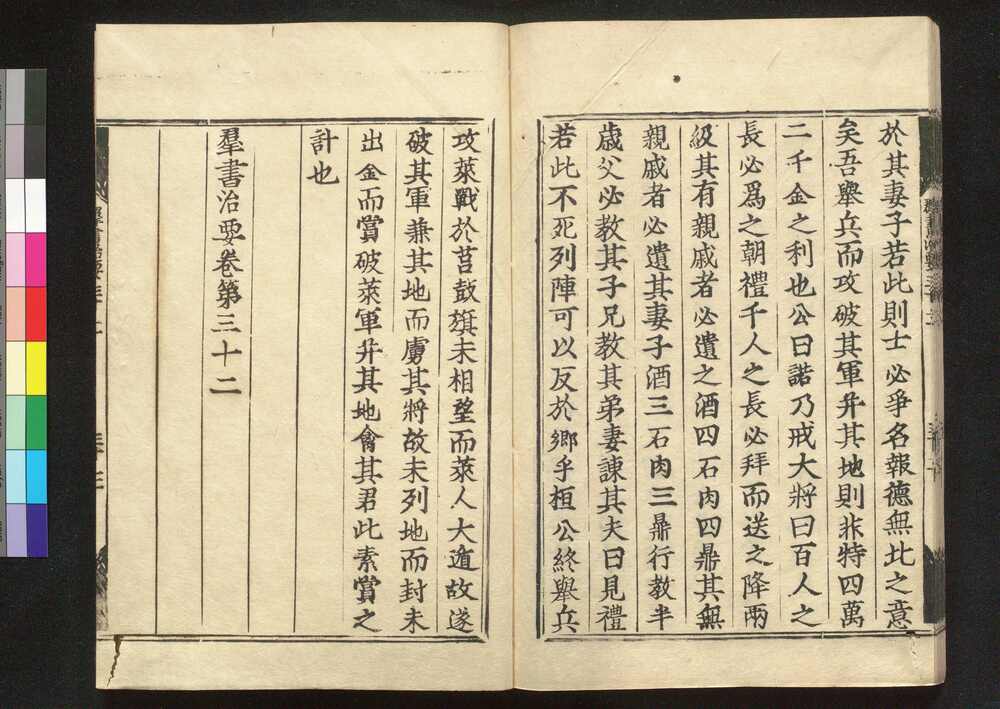 於其妻子若此則士必爭名報德無北之意
矣吾舉兵而攻破其軍幷其地則非特四萬
二千金之利也公曰諾乃戒大將曰百人之
長必爲之朝禮千人之長必拜而送之降兩
級其有親戚者必遺之酒四石肉四鼎其無
親戚者必遺其妻子酒三石肉三鼎行教半
歲父必教其子兄教其弟妻諫其夫曰見禮
若此不死列陣可以反於鄉乎桓公終舉兵
攻萊戰於莒鼓旗未相望而萊人大遁故遂
破其軍兼其地而虜其將故未列地而封未
出金而賞破萊軍幷其地禽其君此素賞之
計也
羣書治要卷第三十二